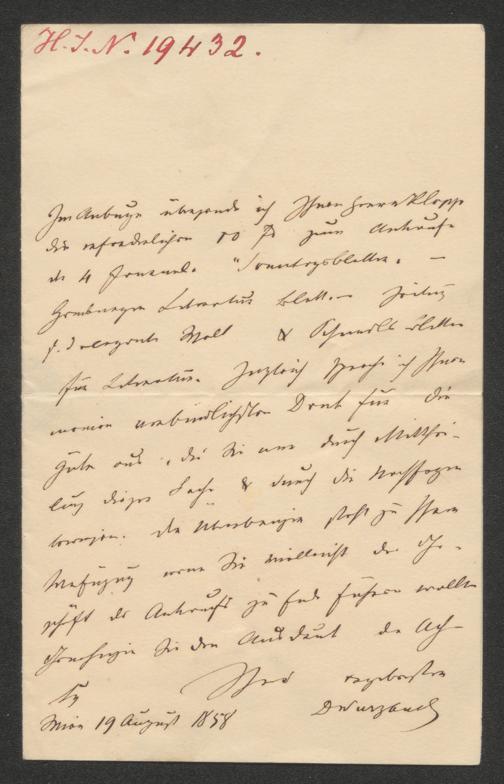 H.I.N. 19432.
Im Anbuge übersende ich Ihnen Herrn Klopp
die erforderlichen 10 fl zum Ankaufe
der 4 Journale. "Sonntagsblätter. —
Hamburger Literatur Blatt. — Zeitung
f. d elegante Welt & Schmidls Blätter
für Literatur. Zugleich spreche ich Ihnen
meinen verbindlichsten Dank für die
Güte aus, die Sie mir durch Mitthei-
lung dieser Sache & durch die
bewiesen. die Überbringerin steht zu Ihrer
Verfügung wenn Sie vielleicht das Ge-
schäft des Ankaufs zu Ende führen wollten
Genehmigen Sie den Ausdruck der Ach-
tg Ihres ergebensten
Wien 19 August 1858 DWurzbach